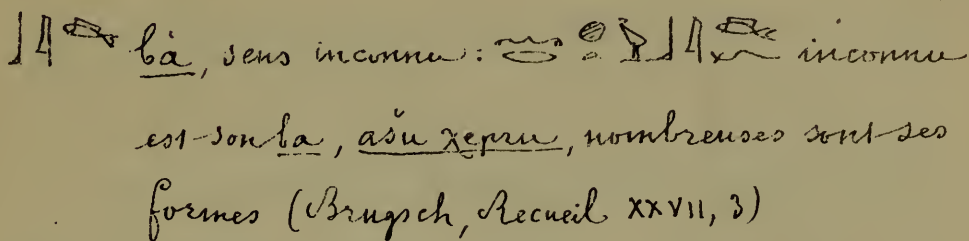 𓃀𓇋 bȧ, sens inconnu: 𓃀𓇋 inconnu
est son ba, ašu χepru, nombreuses sont ses
formes (Brugsch, Recueil XXVII, 3)